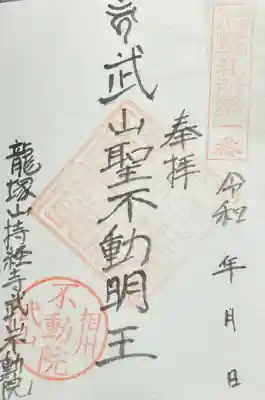 奉拝
令和 年 月 日
武山聖不動明王
龍塚山持経寺武山不動院
相州
不動院
武山
札所第一番